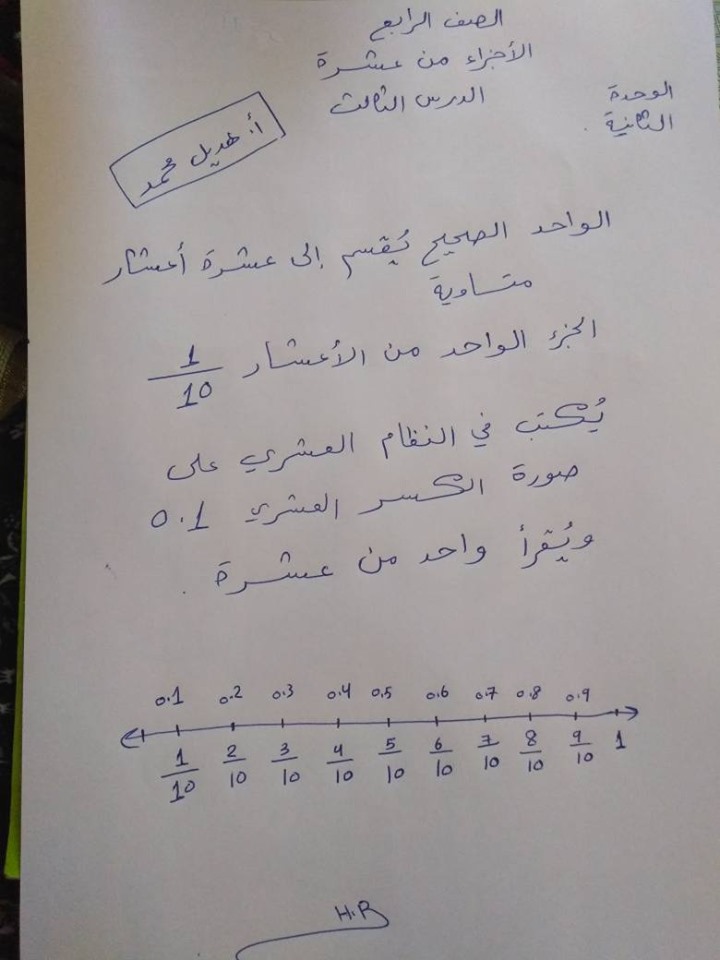 الصف الرابع
الأجزاء من عشرة
الدرس الثالث
الوحدة
الثانية
أ. هديل محمد
الواحد الصحيح يُقسم إلى عشرة أعشار
متساوية
الجزء الواحد من الأعشار 1/10
يُكتب في النظام العشري على
صورة الكسر العشري 0.1
ويُقرأ واحد من عشرة .
0.1 0.2 0.3 0.4 0.5 0.6 0.7 0.8 0.9
1/10 2/10 3/10 4/10 5/10 6/10 7/10 8/10 9/10 1
H.R